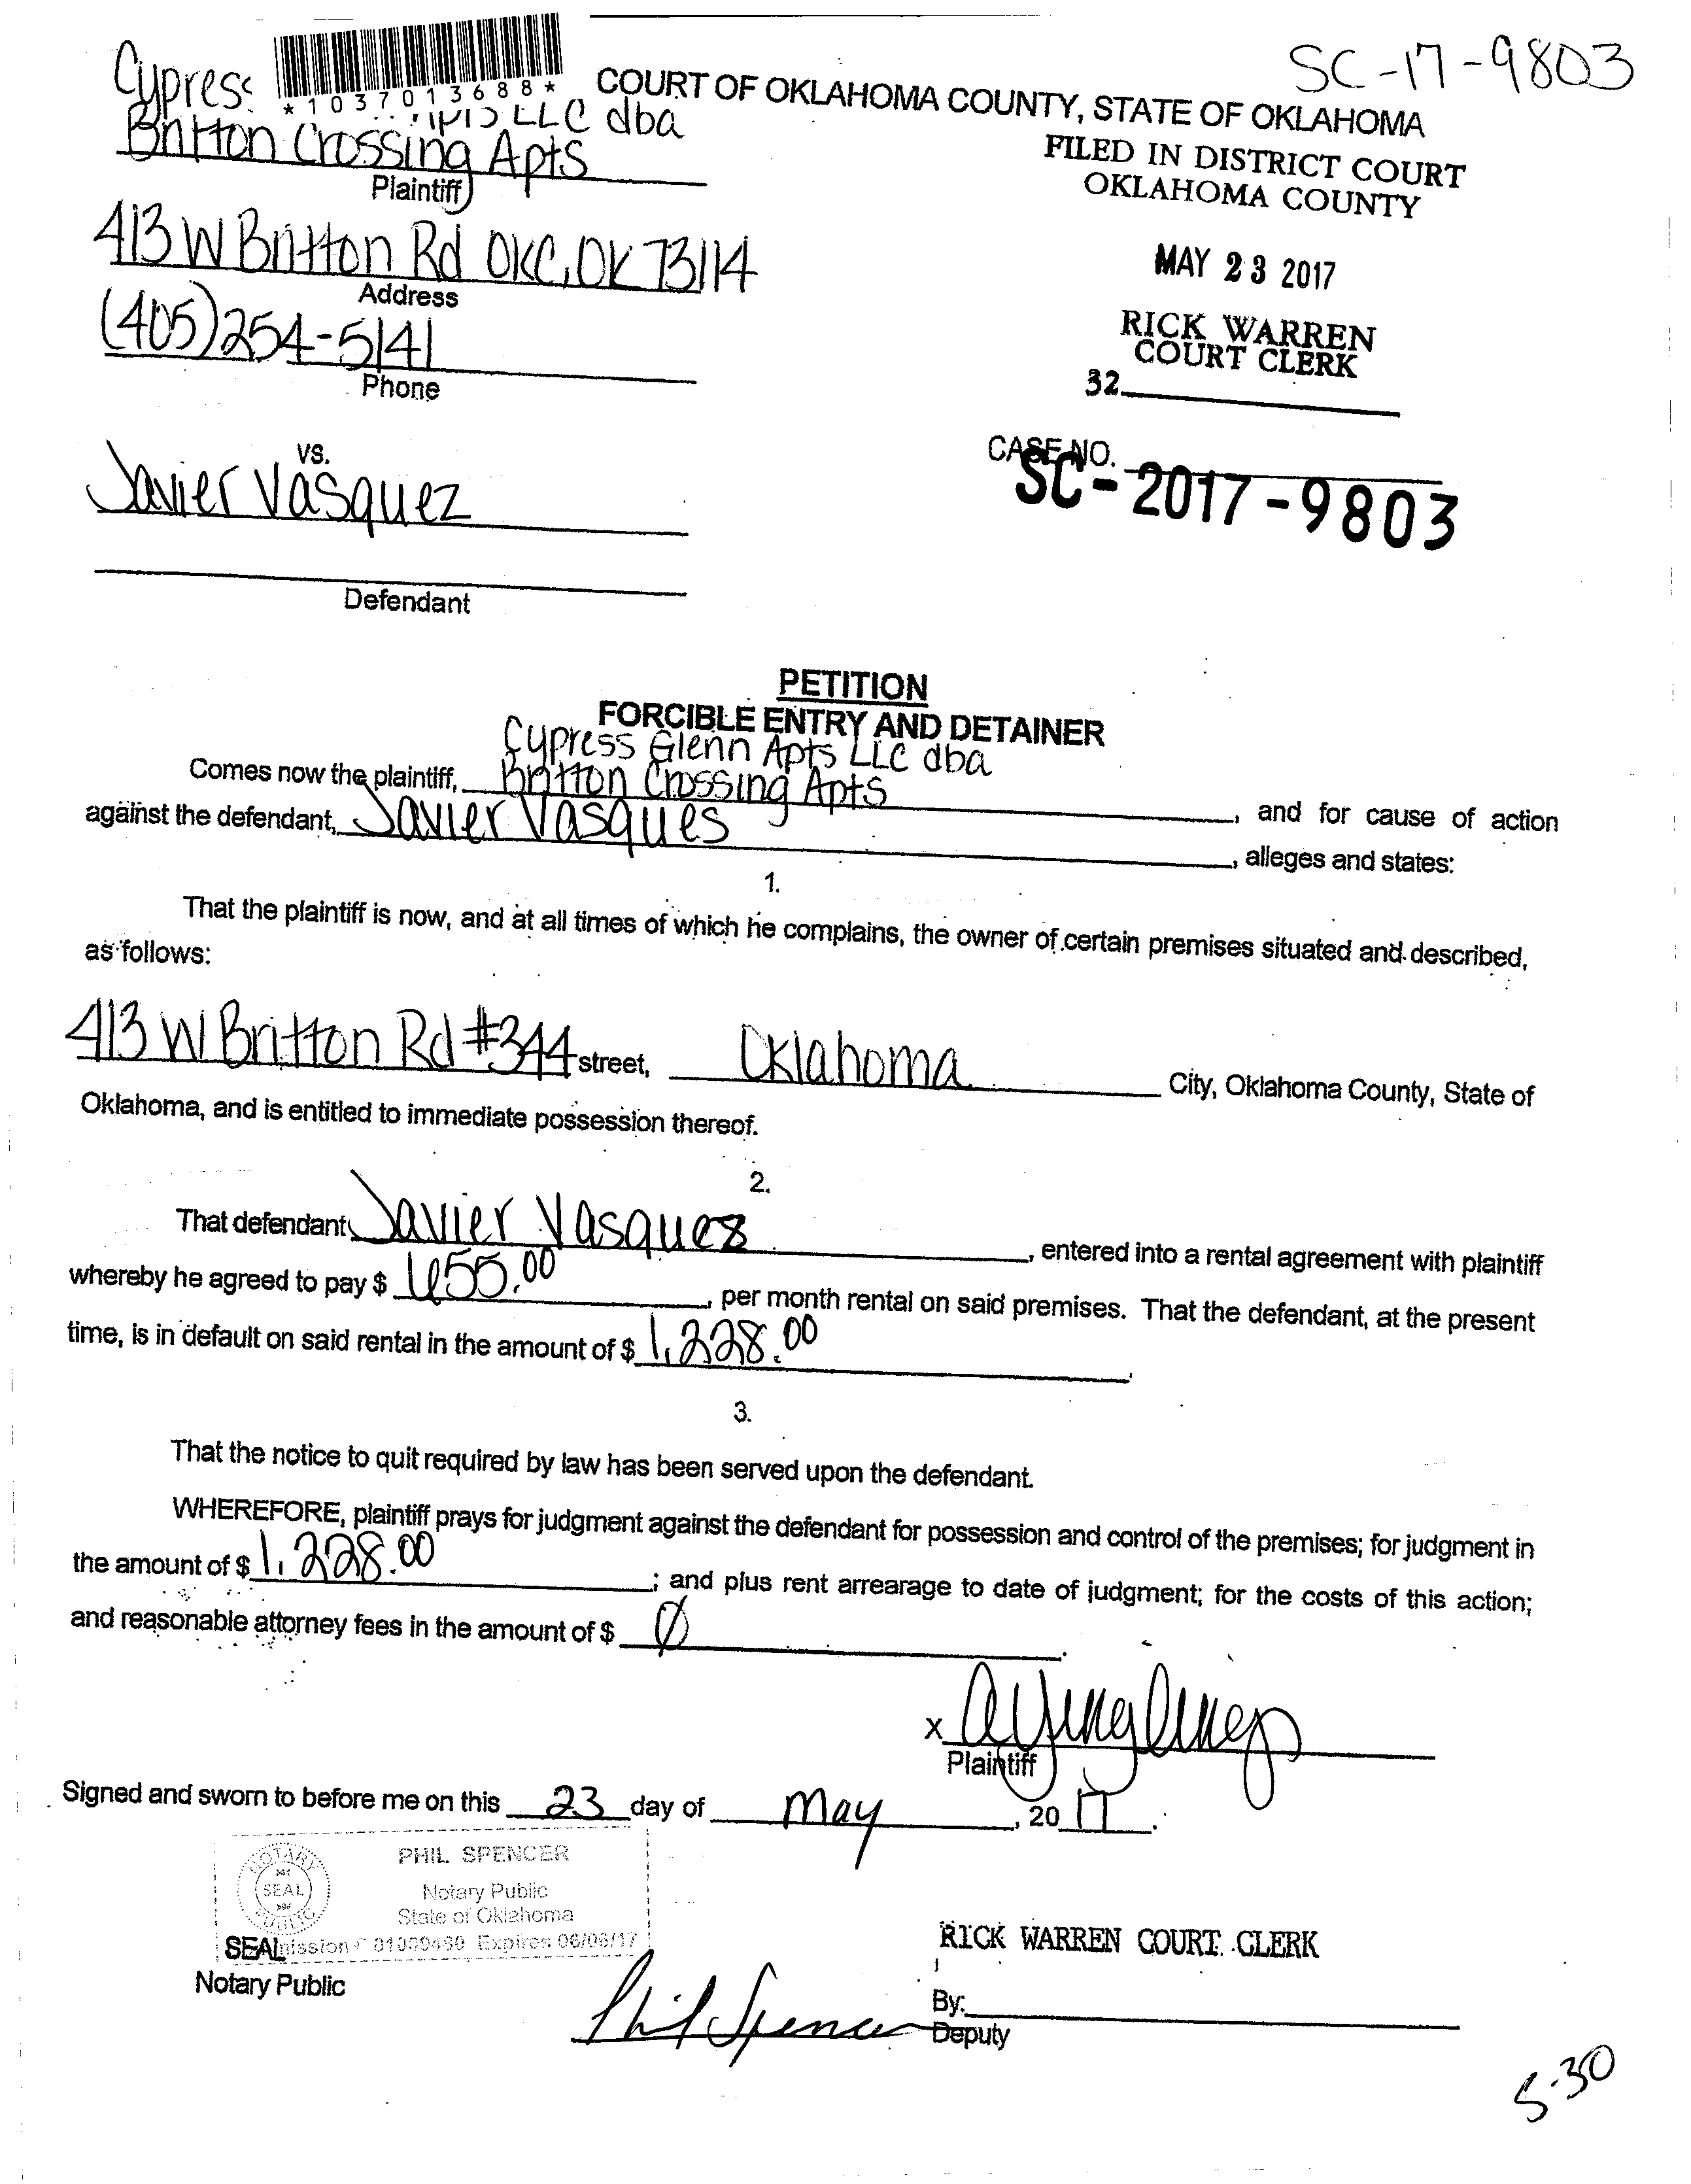 SC-17-9803
Cypress
*1037013688*
COURT OF OKLAHOMA COUNTY, STATE OF OKLAHOMA
LLC dba
Britton Crossing Apts
Plaintiff
FILED IN DISTRICT COURT
OKLAHOMA COUNTY
413 W Britton Rd OKC, OK 73114
Address
MAY 23 2017
(405)254-5141
Phone
RICK WARREN
COURT CLERK
32
vs.
CASE NO.
SC-2017-9803
Javier Vasquez
Defendant
PETITION
FORCIBLE ENTRY AND DETAINER
Cypress Glenn Apts LLC dba
Comes now the plaintiff, Britton Crossing Apts, and for cause of action
against the defendant, Javier Vasques, alleges and states:
1.
That the plaintiff is now, and at all times of which he complains, the owner of certain premises situated and described,
as follows:
413 W Britton Rd #344 street, Oklahoma City, Oklahoma County, State of
Oklahoma, and is entitled to immediate possession thereof.
2.
That defendant Javier Vasquez, entered into a rental agreement with plaintiff
whereby he agreed to pay $ 655.00, per month rental on said premises. That the defendant, at the present
time, is in default on said rental in the amount of $ 1,228.00.
3.
That the notice to quit required by law has been served upon the defendant.
WHEREFORE, plaintiff prays for judgment against the defendant for possession and control of the premises; for judgment in
the amount of $ 1,228.00; and plus rent arrearage to date of judgment; for the costs of this action;
and reasonable attorney fees in the amount of $ Ø.
x
Plaintiff
Signed and sworn to before me on this 23 day of May, 2017.
NOTARY PUBLIC SEAL
PHIL SPENCER
Notary Public
State of Oklahoma
SEAL mission # 01009489 Expires 06/06/17
Notary Public
RICK WARREN COURT CLERK
Phil Spencer
By:
Deputy
5-30